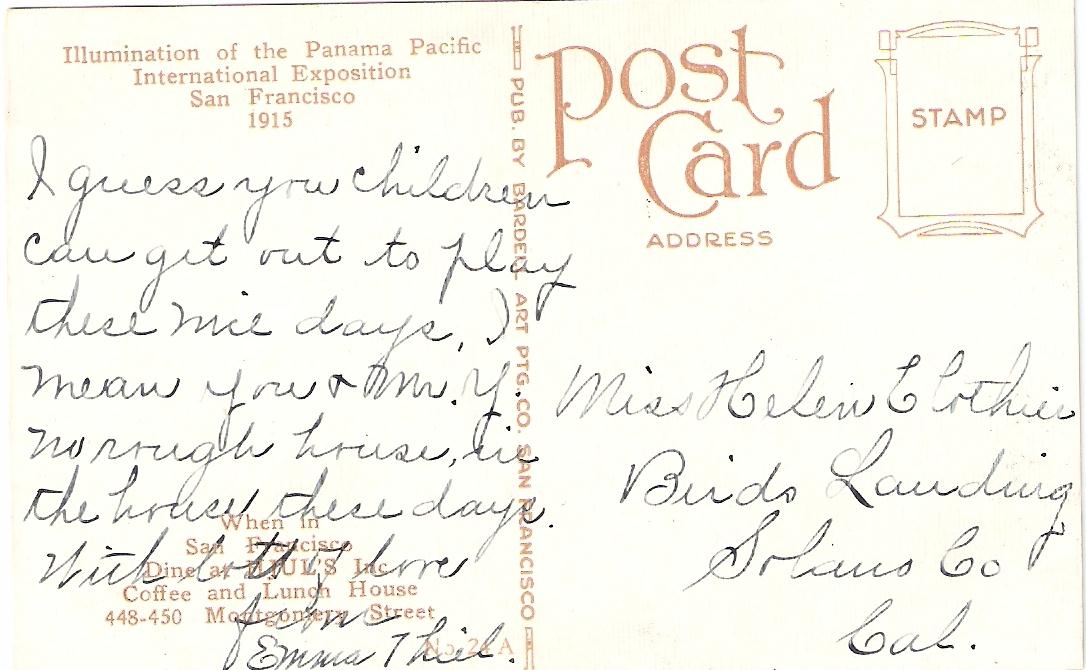 Illumination of the Panama Pacific
International Exposition
San Francisco
1915
I guess you children
can get out to play
these nice days, I
mean you & Mr. Y.
no rough house, in
the house these days.
With lotts of love
from
Emma Thiel.
When in
San Francisco
Dine at HJUL'S Inc
Coffee and Lunch House
448-450 Montgomery Street
No. 24 A
PUB. BY BARDELL ART PTG. CO. SAN FRANCISCO
Post
Card
ADDRESS
STAMP
Miss Helen Clothier
Birds Landing
Solano Co
Cal.